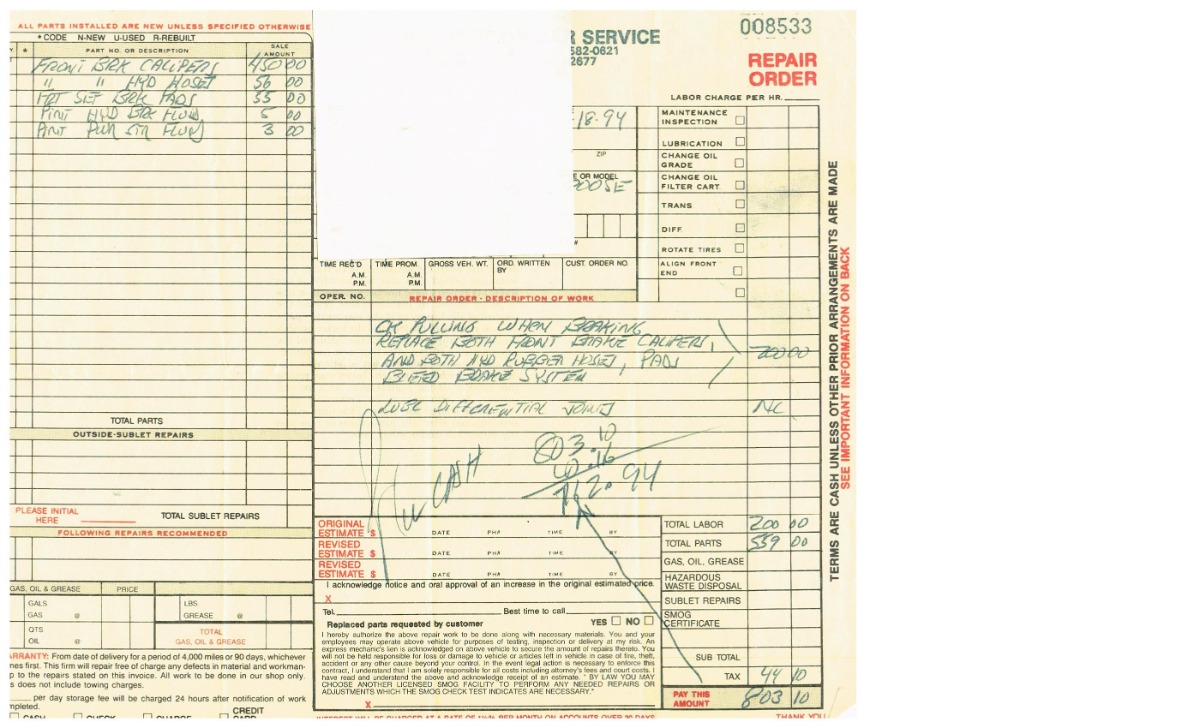 ALL PARTS INSTALLED ARE NEW UNLESS SPECIFIED OTHERWISE
* CODE N-NEW U-USED R-REBUILT
* PART NO. OR DESCRIPTION SALE AMOUNT
FRONT BRK CALIPERS 450 00
" " HYD HOSES 56 00
FRT SET BRK PADS 55 00
PINT HYD BRK FLUID 5 00
PINT PWR STR FLUID 3 00
TOTAL PARTS
OUTSIDE-SUBLET REPAIRS
PLEASE INITIAL HERE TOTAL SUBLET REPAIRS
FOLLOWING REPAIRS RECOMMENDED
GAS, OIL & GREASE PRICE
GALS GAS @ LBS GREASE @
QTS OIL @ TOTAL GAS, OIL & GREASE
RRANTY: From date of delivery for a period of 4,000 miles or 90 days, whichever
nes first. This firm will repair free of charge any defects in material and workman-
p to the repairs stated on this invoice. All work to be done in our shop only.
s does not include towing charges.
per day storage fee will be charged 24 hours after notification of work
mpleted.
CASH CHECK CHARGE CREDIT CARD
R SERVICE
582-0621
2677
008533
REPAIR
ORDER
LABOR CHARGE PER HR.
-18-94
ZIP
E OR MODEL
MAINTENANCE INSPECTION
LUBRICATION
CHANGE OIL GRADE
CHANGE OIL FILTER CART.
TRANS
DIFF.
ROTATE TIRES
ALIGN FRONT END
TIME REC'D A.M. P.M. TIME PROM. A.M. P.M. GROSS VEH. WT. ORD. WRITTEN BY CUST. ORDER NO.
OPER. NO. REPAIR ORDER - DESCRIPTION OF WORK
CK PULLING WHEN BRAKING
REPLACE BOTH FRONT BRAKE CALIPERS,
AND BOTH HYD RUBBER HOSES, PADS 200 00
BLEED BRAKE SYSTEM
LUBE DIFFERENTIAL JOINTS NC
803.10
40.16
762.94
CASH
ORIGINAL ESTIMATE $ DATE PH# TIME BY
REVISED ESTIMATE $ DATE PH# TIME BY
REVISED ESTIMATE $ DATE PH# TIME BY
I acknowledge notice and oral approval of an increase in the original estimated price.
X
Tel. Best time to call
Replaced parts requested by customer YES NO
I hereby authorize the above repair work to be done along with necessary materials. You and your
employees may operate above vehicle for purposes of testing, inspection or delivery at my risk. An
express mechanic's lien is acknowledged on above vehicle to secure the amount of repairs thereto. You
will not be held responsible for loss or damage to vehicle or articles left in vehicle in case of fire, theft,
accident or any other cause beyond your control. In the event legal action is necessary to enforce this
contract, I understand that I am solely responsible for all costs including attorney's fees and court costs. I
have read and understand the above and acknowledge receipt of an estimate. " BY LAW YOU MAY
CHOOSE ANOTHER LICENSED SMOG FACILITY TO PERFORM ANY NEEDED REPAIRS OR
ADJUSTMENTS WHICH THE SMOG CHECK TEST INDICATES ARE NECESSARY."
X
TOTAL LABOR 200 00
TOTAL PARTS 559 00
GAS, OIL, GREASE
HAZARDOUS WASTE DISPOSAL
SUBLET REPAIRS
SMOG CERTIFICATE
SUB TOTAL
TAX 44 10
PAY THIS AMOUNT 803 10
THANK YOU
TERMS ARE CASH UNLESS OTHER PRIOR ARRANGEMENTS ARE MADE
SEE IMPORTANT INFORMATION ON BACK